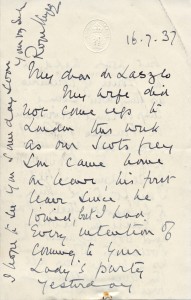 16-7.37
My dear de Laszlo
My wife did
not come up to
London this week
as our Scots Grey
Son came home
on leave, his first
leave since he
joined, but I had
every intention of
coming to your
Lady's party
yesterday
I hope to see you some day soon